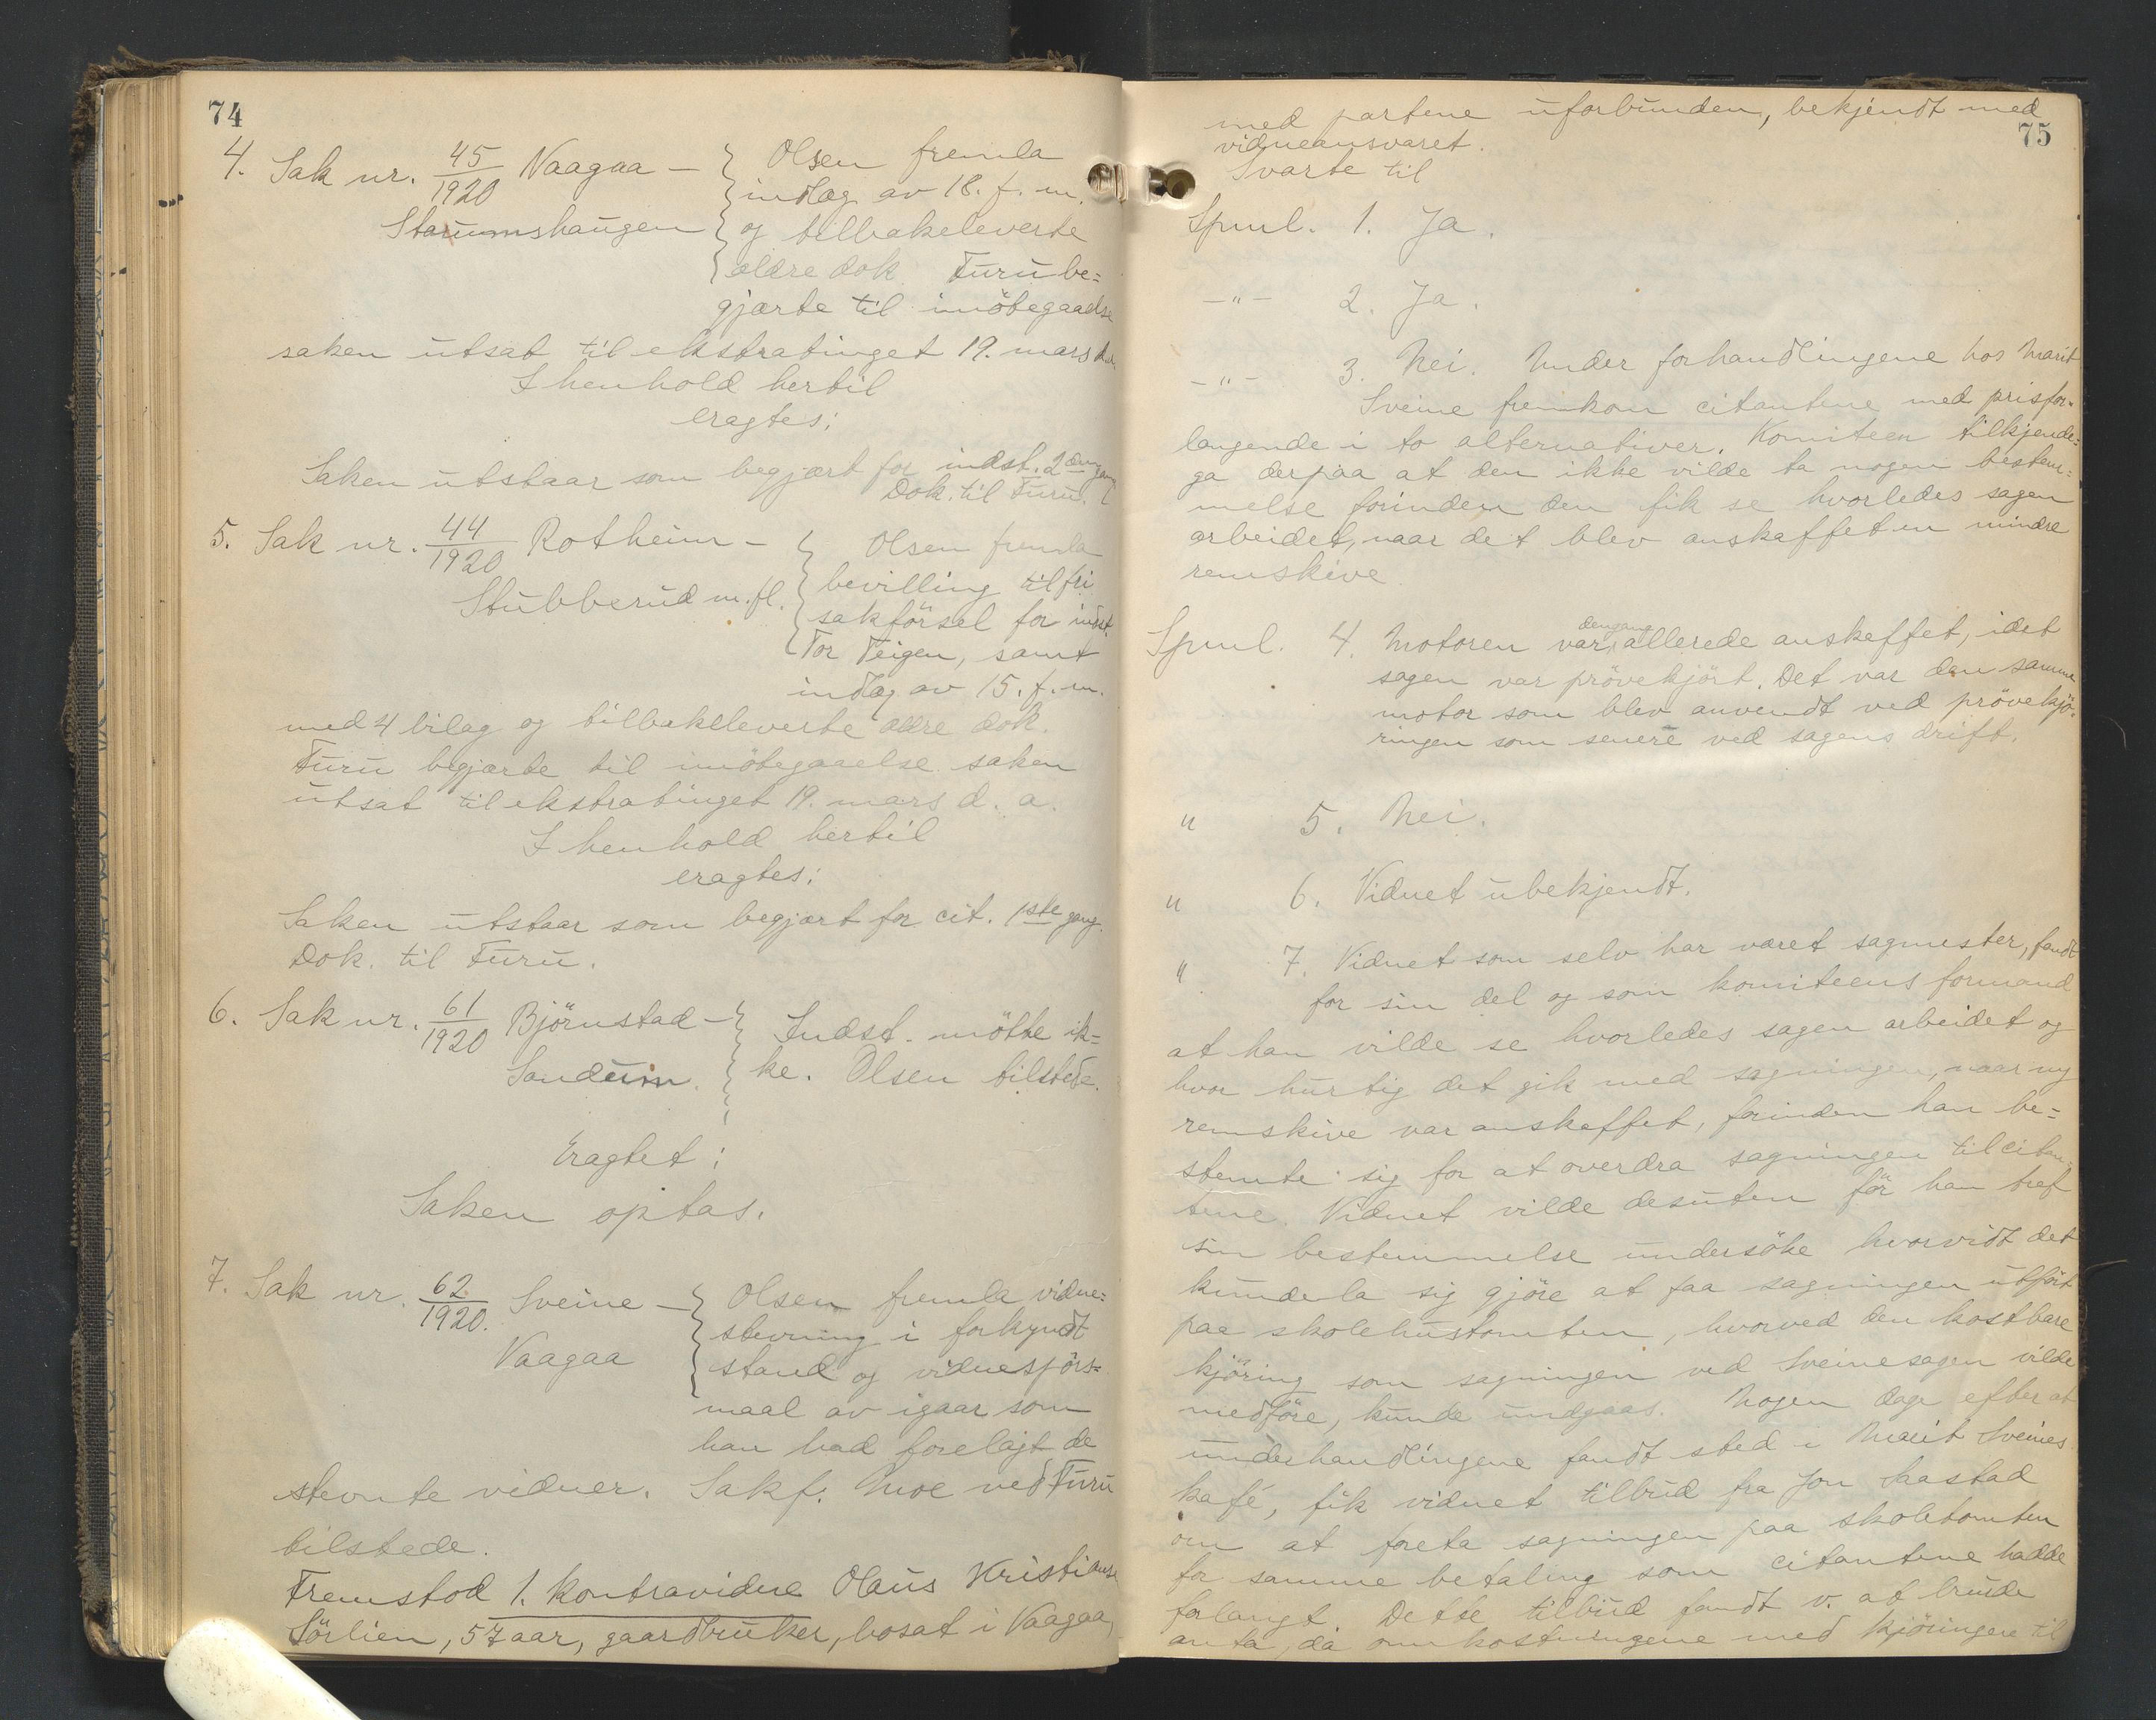 74
4. Sak nr. 45/1920 Vaagaa –
Starumshaugen
Olsen fremla
indlæg av 18. f. m.
og tilbakeleverte
ældre dok. Furu be=
gjærte til imötegaaelse
saken utsat til ekstratinget 19. mars d.a.
I henhold hertil
eragtes:
Saken utstaar som begjært for indst. 2den gang
Dok. til Furu.
5. Sak nr. 44/1920 Rotheim –
Stubberud m. fl.
Olsen fremla
bevilling til fri
sakförsel for indst.
Tor Teigen, samt
indlæg av 15. f. m.
med 4 bilag og tilbakeleverte ældre dok.
Furu begjærte til imötegaaelse saken
utsat til ekstratinget 19. mars d. a.
I henhold hertil
eragtes:
Saken utstaar som begjært for cit. 1ste gang.
Dok. til Furu.
6. Sak nr. 61/1920 Björnstad –
Sandum.
Indst. mötte ik=
ke. Olsen tilstede.
Eragtet:
Saken optas.
7. Sak nr. 62/1920. Sveine –
Vaagaa
Olsen fremla vidne=
stevning i forkyndt
stand og vidnespörs=
maal av igaar som
han had forelagt de
stevnte vidner. Sakf. Moe ved Furu
tilstede.
Fremstod 1. kontravidne Olaus Kristiansen
Sörlien, 57 aar, gaardbruker, bosat i Vaagaa,
75
med partene uforbunden, bekjendt med
vidneansvaret.
Svarte til
Spml. 1. Ja.
–"– 2. Ja.
–"– 3. Nei. Under forhandlingene hos Marit
Sveine fremkom citantene med prisfor=
langende i to alternativer. Komiteen tilkjende=
ga derpaa at den ikke vilde ta nogen bestem=
melse forinden den fik se hvorledes sagen
arbeidet, naar det blev anskaffet en mindre
remskive.
Spml. 4. Motoren var dengang allerede anskaffet, idet
sagen var prövekjört. Det var den samme
motor som blev anvendt ved prövekjö=
ringen som senere ved sagens drift.
" 5. Nei.
" 6. Vidnet ubekjendt.
" 7. Vidnet som selv har været sagmester, fandt
for sin del og som komiteens formand
at han vilde se hvorledes sagen arbeidet og
hvor hurtig det gik med sagningen, naar ny
remskive var anskaffet, forinden han be=
stemte sig for at overdra sagningen til citan=
tene. Vidnet vilde desuten för han traf
sin bestemmelse undersöke hvorvidt det
kunde la sig gjöre at faa sagningen utfört
paa skolehustomten, hvorved den kostbare
kjöring som sagningen ved Sveinesagen vilde
medföre, kunde undgaas. Nogen dage efter at
underhandlingene fandt sted i Marit Sveines
kafé, fik vidnet tilbud fra Jon Hastad
om at foreta sagningen paa skoletomten
for samme betaling som citantene hadde
forlangt. Dette tilbud fandt v. at burde
anta, da omkostningene med kjöringen til